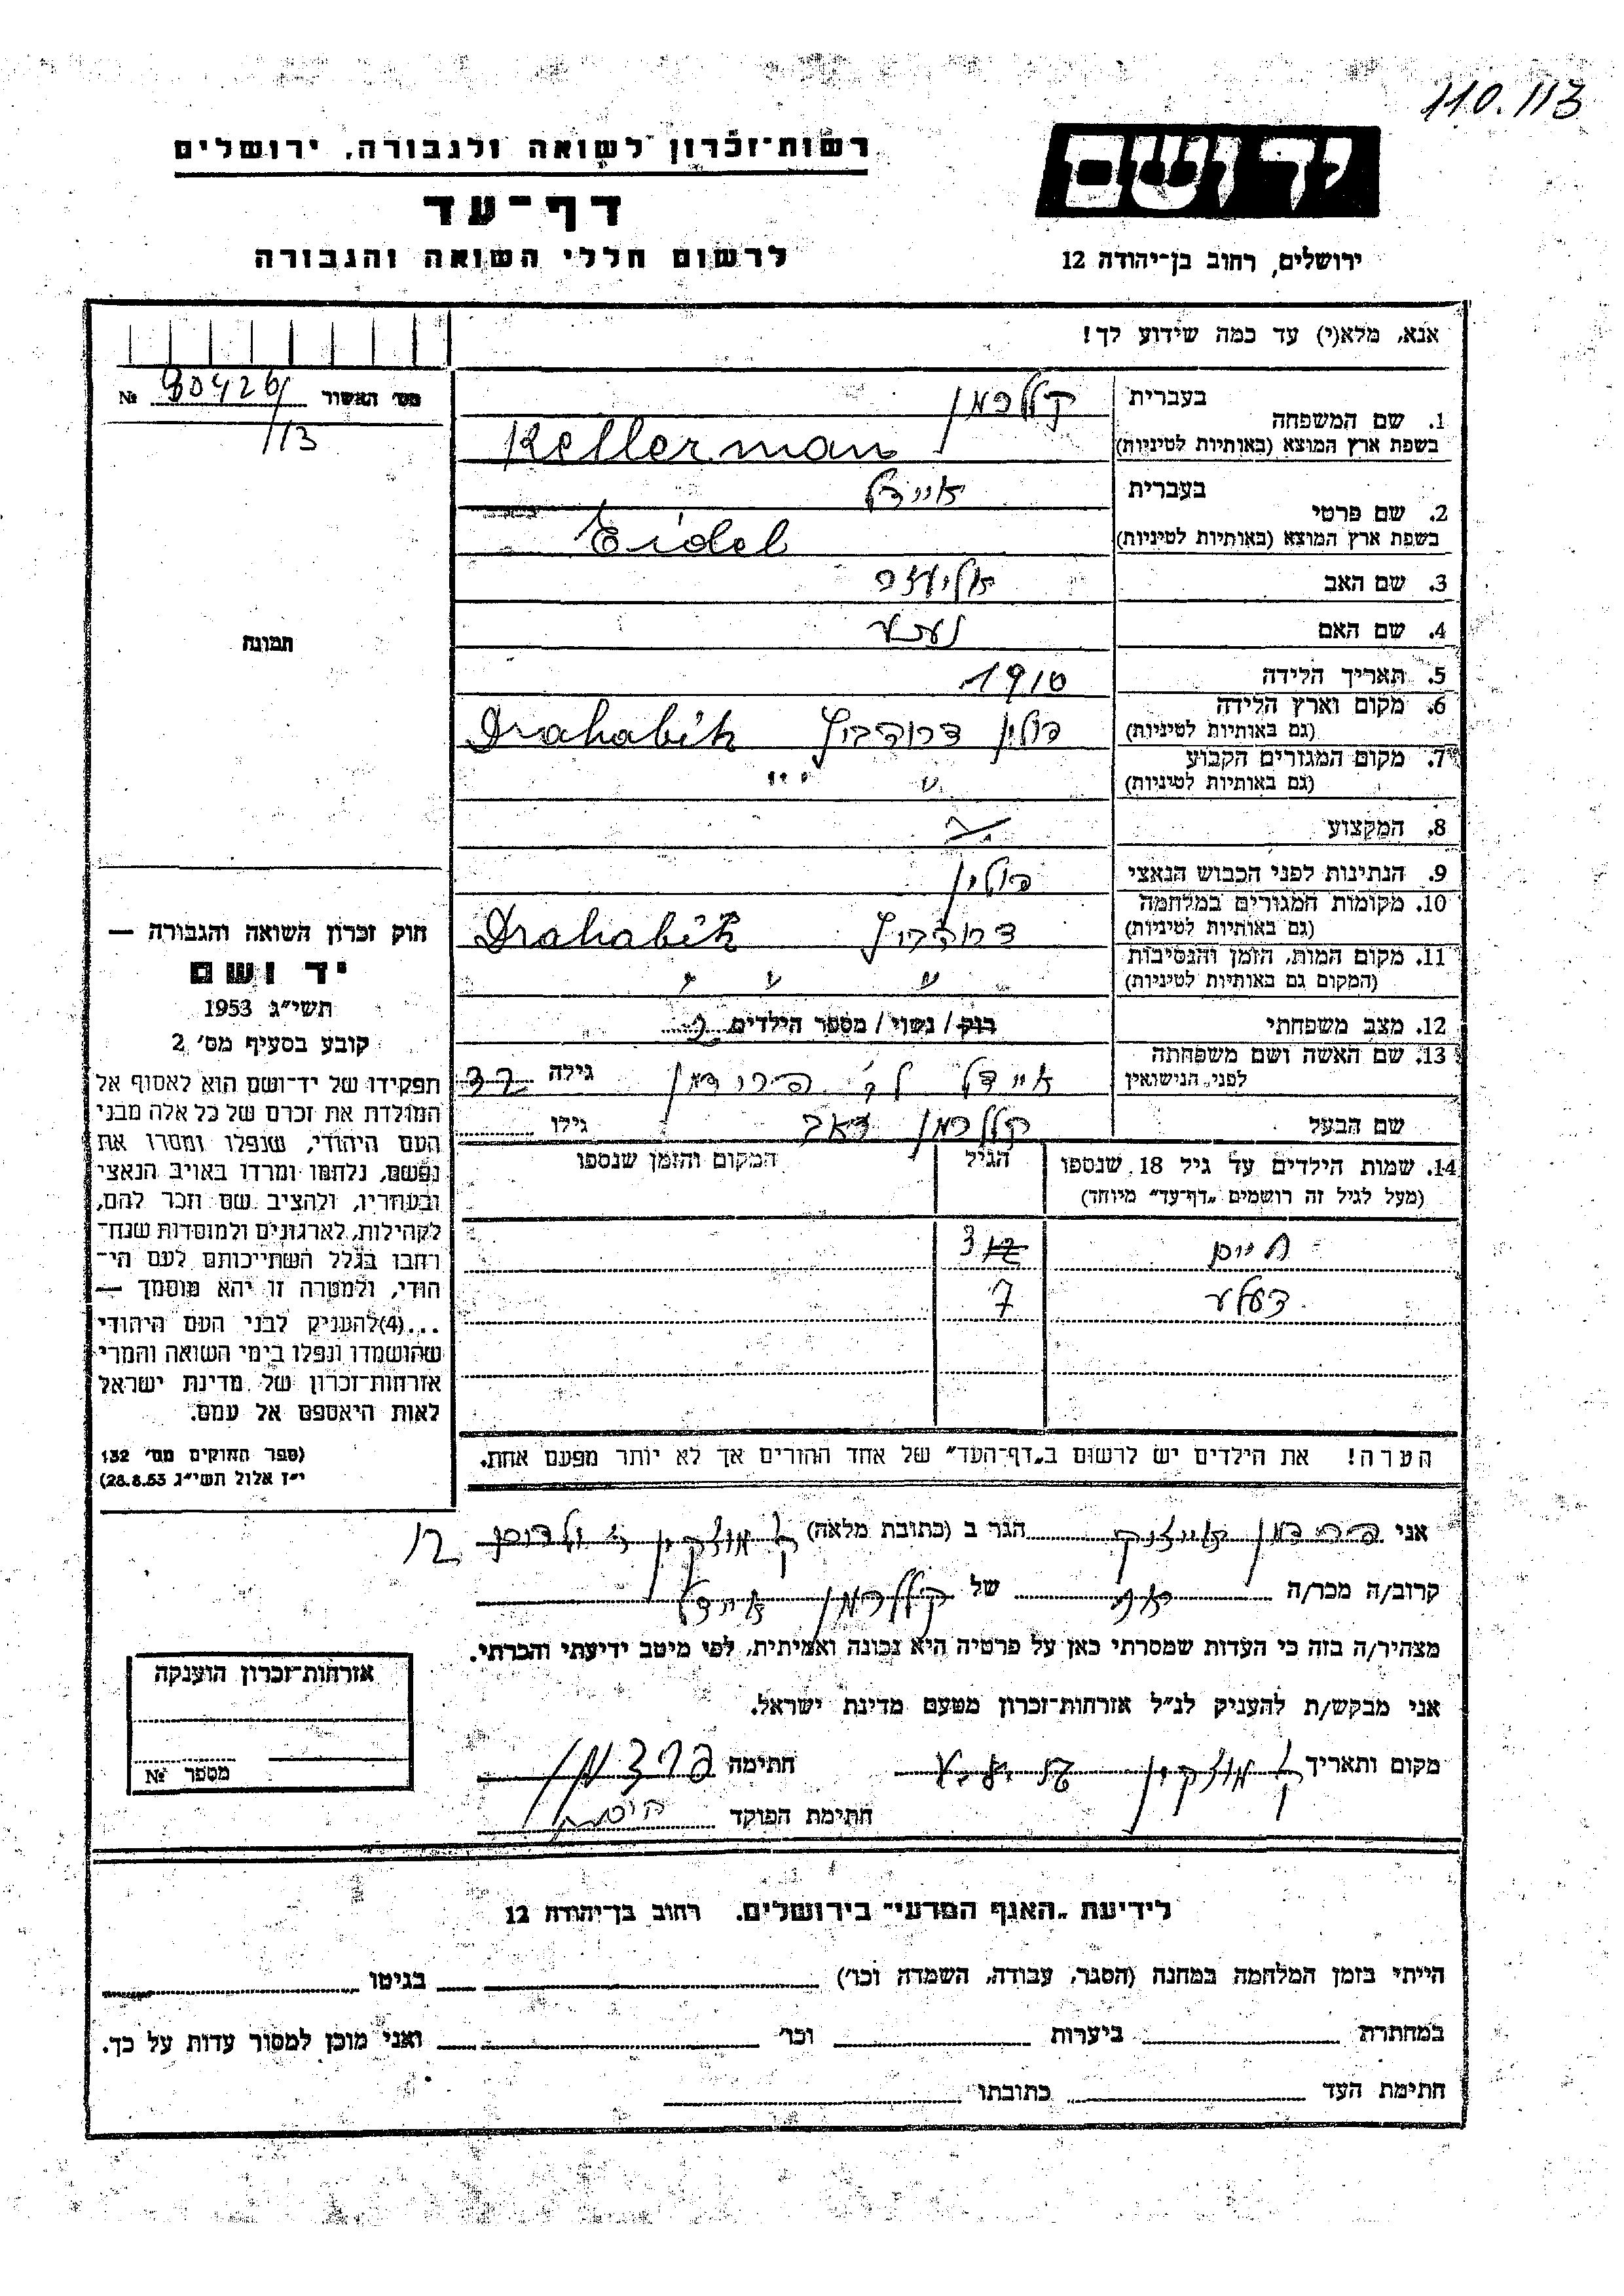 110.113
ידושם
רשות־זכרון לשואה ולגבורה, ירושלים
דף־עד
לרשום חללי השואה והגבורה
ירושלים, רחוב בן־יהודה 12
אנא, מלא(י) עד כמה שידוע לך!
מס׳ האשור № 80426/
/113
בעברית קלרמן
1. שם המשפחה
בשפת ארץ המוצא (באותיות לטיניות) Kellerman
בעברית איידל
2. שם פרטי
בשפת ארץ המוצא (באותיות לטיניות) Eidel
3. שם האב אליעזר
4. שם האם
5. תאריך הלידה 1910
6. מקום וארץ הלידה
(גם באותיות לטיניות) פולין דרוהביץ Drahabitz
7. מקום המגורים הקבוע
(גם באותיות לטיניות) " "
8. המקצוע
9. הנתינות לפני הכבוש הנאצי פולין
10. מקומות המגורים במלחמה
(גם באותיות לטיניות) דרוהביץ Drahabitz
11. מקום המות, הזמן והנסיבות
(המקום גם באותיות לטיניות) " " "
12. מצב משפחתי רווק / נשוי / מספר הילדים 2
13. שם האשה ושם משפחתה
לפני הנישואין איידל לב׳ פרידמן גילה
שם הבעל קלרמן גילו
14. שמות הילדים עד גיל 18 שנספו הגיל המקום והזמן שנספו
(מעל לגיל זה רושמים „דף־עד" מיוחד)
3
7
הערה! את הילדים יש לרשום ב„דף־העד" של אחד ההורים אך לא יותר מפעם אחת.
תמונה
חוק זכרון השואה והגבורה —
יד ושם
תשי״ג 1953
קובע בסעיף מס׳ 2
תפקידו של יד־ושם הוא לאסוף אל
המולדת את זכרם של כל אלה מבני
העם היהודי, שנפלו ומסרו את
נפשם, נלחמו ומרדו באויב הנאצי
ובעוזריו, ולהציב שם וזכר להם,
לקהילות, לארגונים ולמוסדות שנח־
רבו בגלל השתייכותם לעם הי־
הודי, ולמטרה זו יהא מוסמך —
...(4) להעניק לבני העם היהודי
שהושמדו ונפלו בימי השואה והמרי
אזרחות־זכרון של מדינת ישראל
לאות היאספם אל עמם.
(ספר החוקים מס׳ 132
י״ז אלול תשי״ג 28.8.53)
אני הגר ב (כתובת מלאה) ק מוצקין 12
קרוב/ה מכר/ה של קלרמן איידל
מצהיר/ה בזה כי העדות שמסרתי כאן על פרטיה היא נכונה ואמיתית, לפי מיטב ידיעתי והכרתי.
אני מבקש/ת להעניק לנ״ל אזרחות־זכרון מטעם מדינת ישראל.
מקום ותאריך ק מוצקין חתימה
חתימת הפוקד
אזרחות־זכרון הוענקה
מספר №
לידיעת „האגף המדעי" בירושלים. רחוב בן־יהודה 12
הייתי בזמן המלחמה במחנה (הסגר, עבודה, השמדה וכו׳) בגיטו
במחתרת ביערות וכו׳ ואני מוכן למסור עדות על כך.
חתימת העד כתובתו